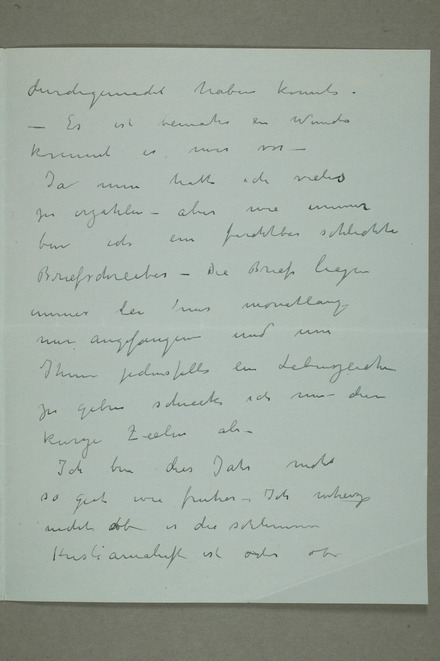 durchgemacht haben konnte.
— Es ist beinahe ein Wunder
kommt es mir vor —
Ja nun hätte ich vieles
zu erzählen — aber wie immer
bin ich ein furchtbar schlechter
Briefschreiber — Die Briefe liegen
immer bei mir monatlang
nur angefangen und um
Ihnen jedenfalls ein Lebenszeichen
zu geben schicke ich nur diese
kurze Zeilen ab —
Ich bin dies Jahr nicht
so gut wie früher — Ich
nicht ob es die schlimme
ist oder ob